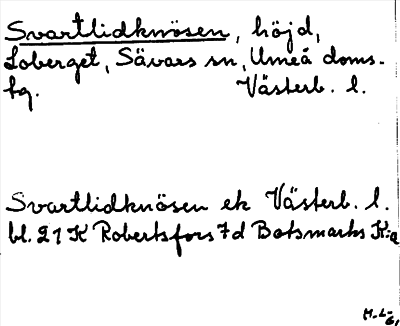 Svartlidknösen, höjd,
Loberget, Sävars sn, Umeå doms.
fg. Västerb. l.
Svartlidknösen ek Västerb. l.
bl. 21 K Robertsfors 7d Botsmarks K:a